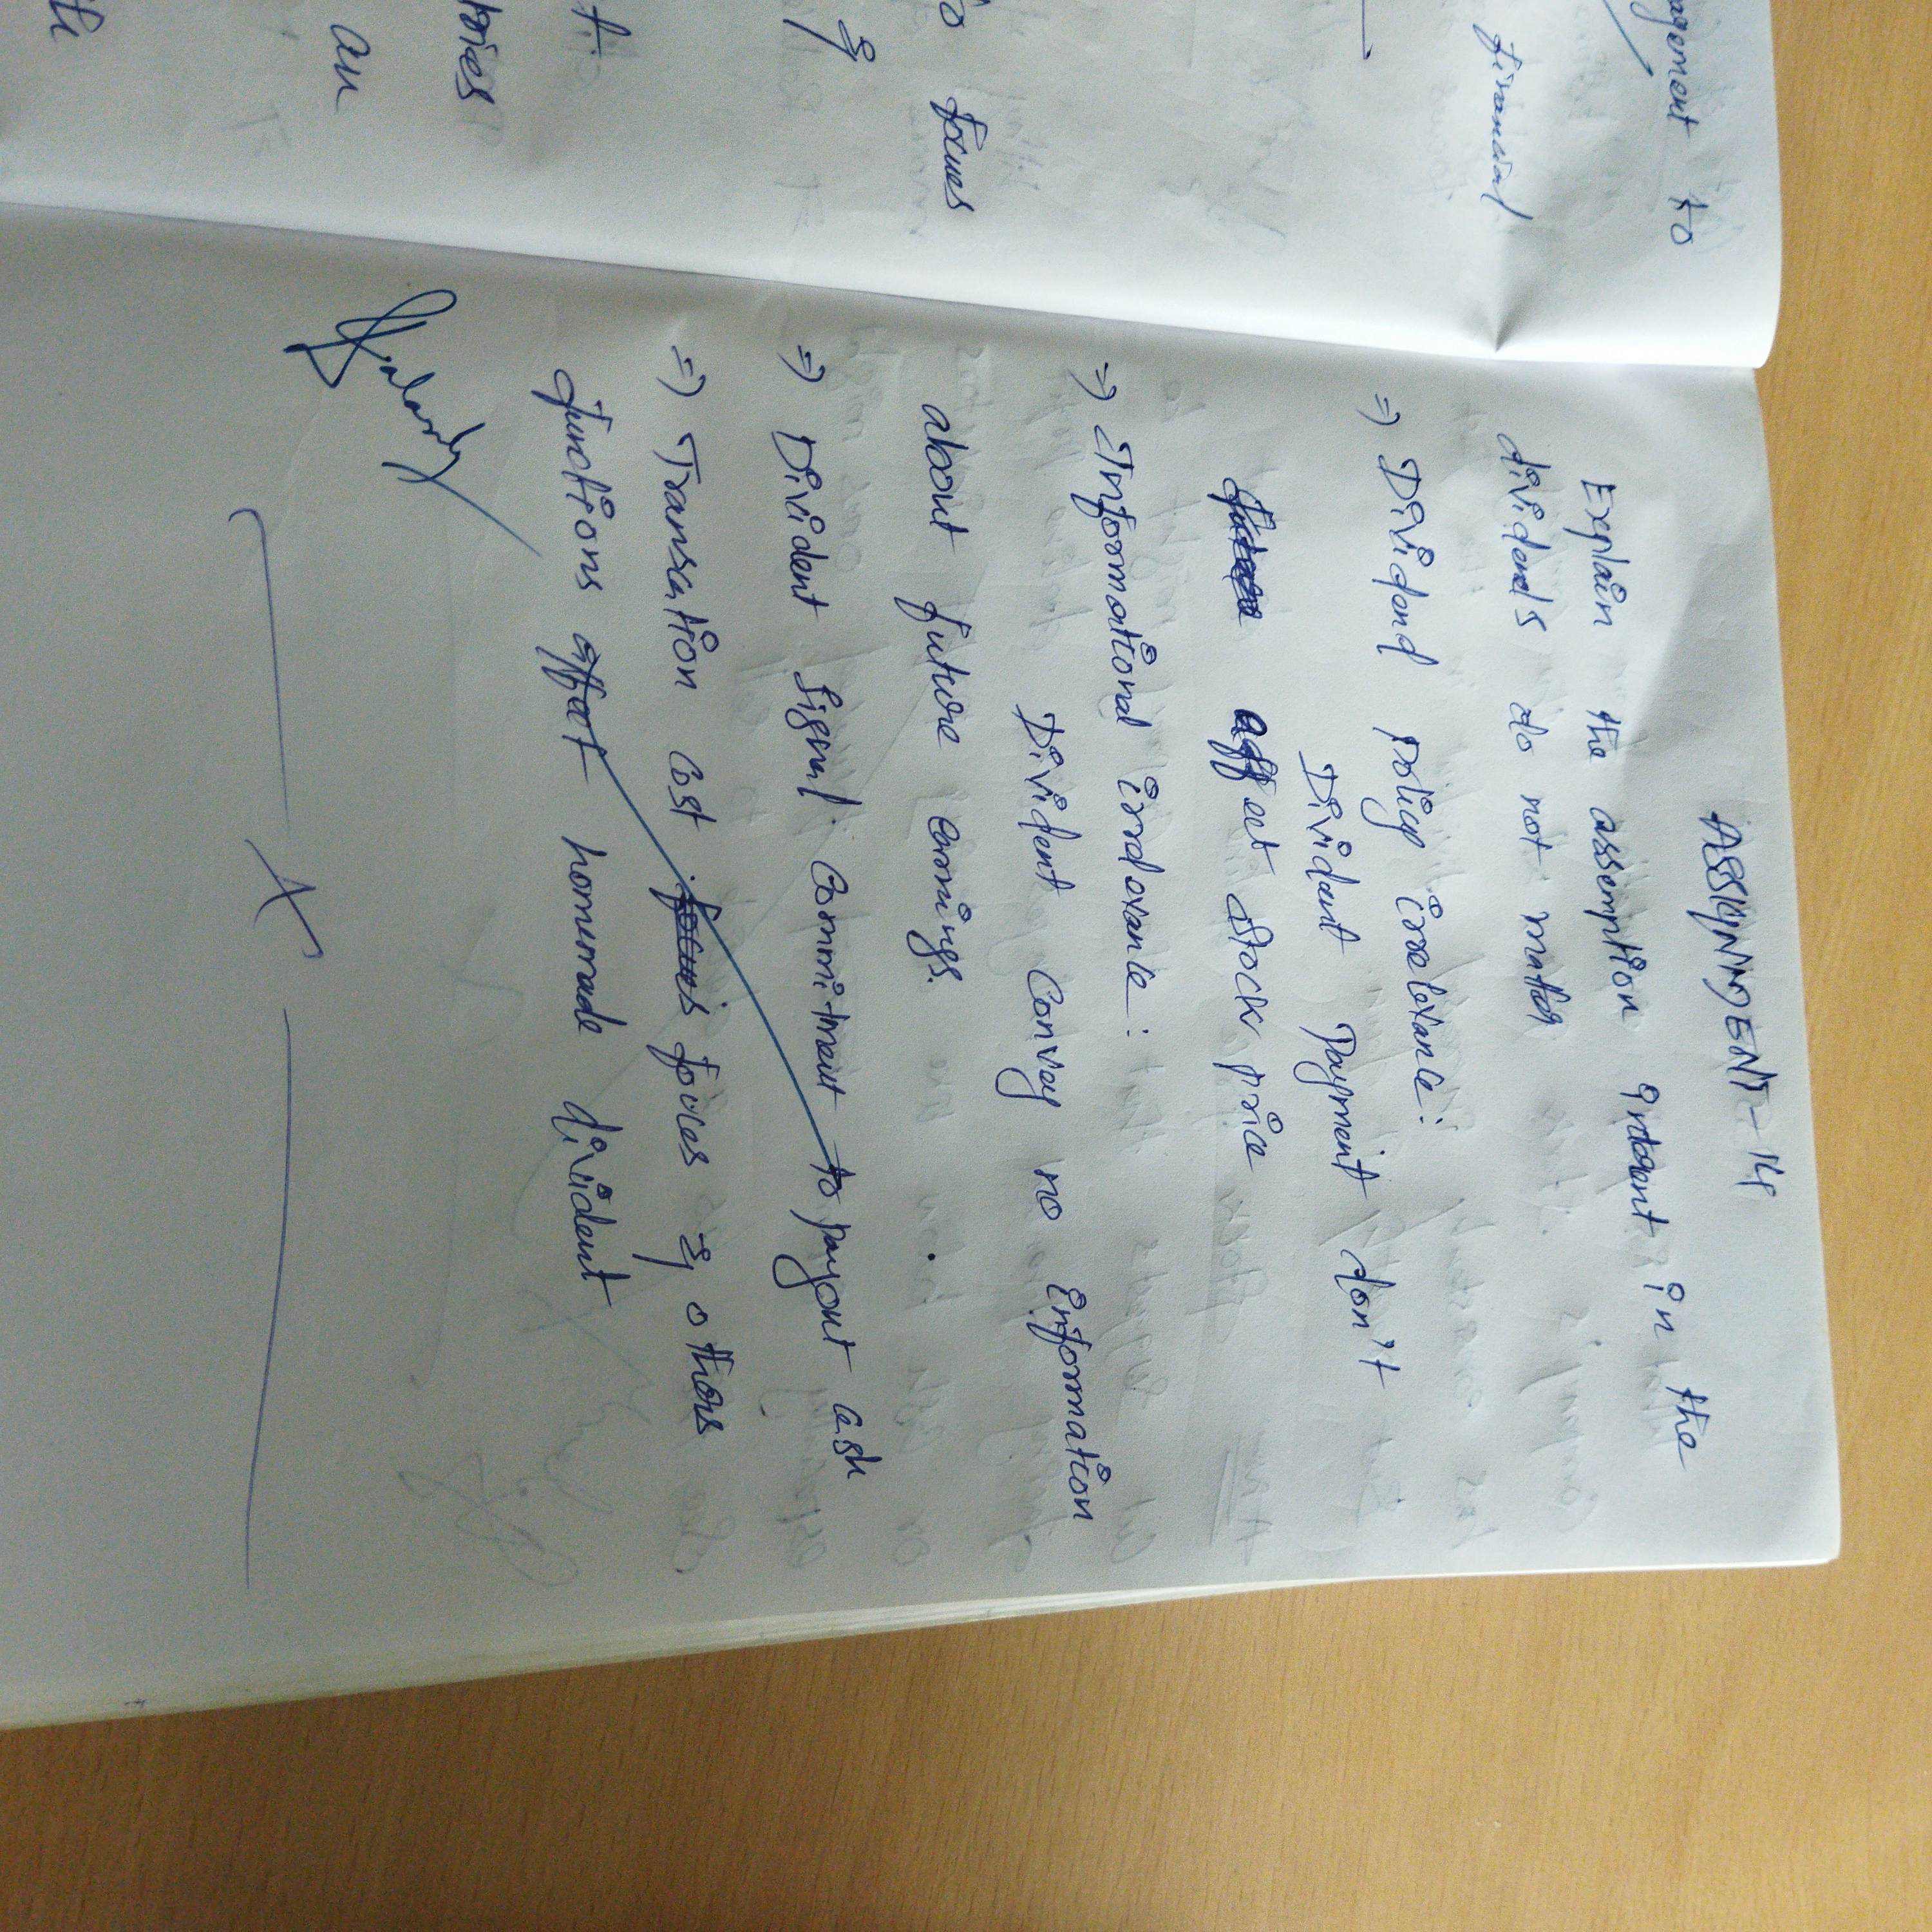 agement to
financial
focues
of
an
ASSIGNMENT-14
Explain the assemption in the
dividends do not matter
=) Dividend policy irrelevance:
Divident Payment don't
affect stock price
=) Informational irrelevance:
Divident Convey no information
about future earnings.
=) Divident Signal Commitment to payout cash
=) Transcation Cost foces of others
functions effect homemade divident
X